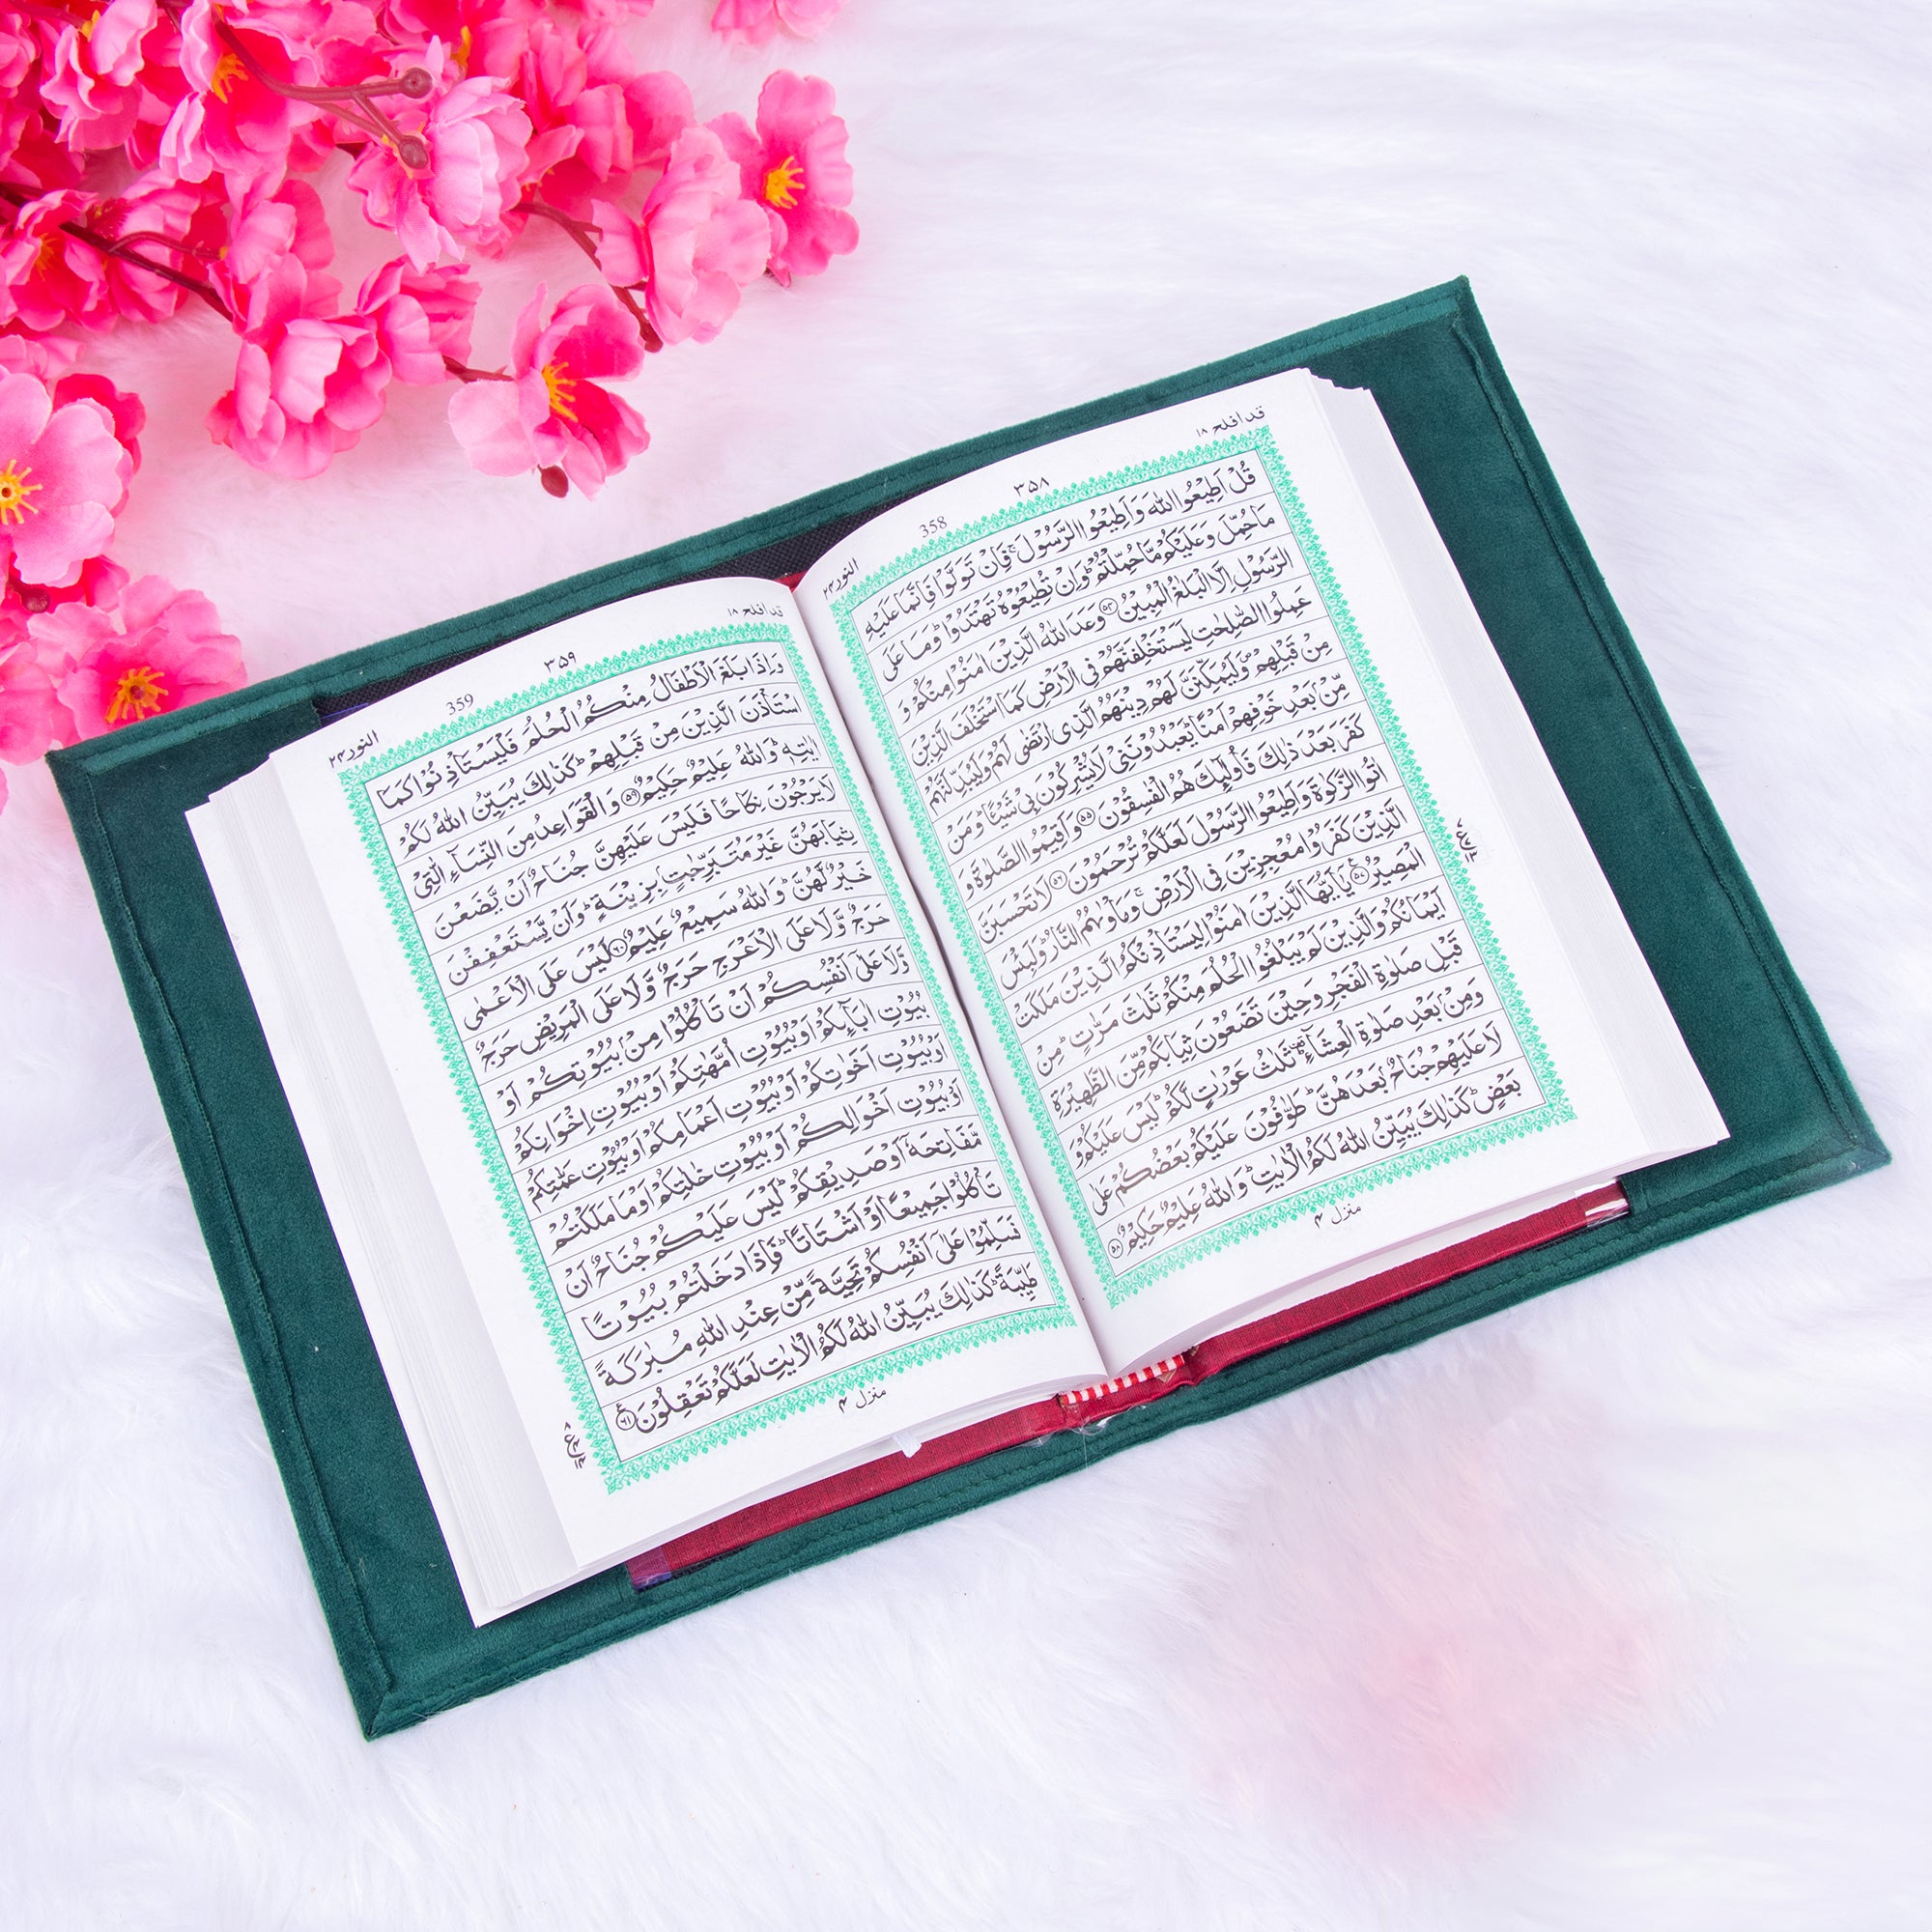 قد افلح ۱۸
۳۵۸
358
النور ۲۴
قُلْ اَطِيْعُوا اللّٰهَ وَاَطِيْعُوا الرَّسُوْلَ ۚ فَاِنْ تَوَلَّوْا فَاِنَّمَا عَلَيْهِ
مَا حُمِّلَ وَعَلَيْكُمْ مَّا حُمِّلْتُمْ ؕ وَاِنْ تُطِيْعُوْهُ تَهْتَدُوْا ؕ وَمَا عَلَى
الرَّسُوْلِ اِلَّا الْبَلٰغُ الْمُبِيْنُ ﴿۵۴﴾ وَعَدَ اللّٰهُ الَّذِيْنَ اٰمَنُوْا مِنْكُمْ وَ
عَمِلُوا الصّٰلِحٰتِ لَيَسْتَخْلِفَنَّهُمْ فِى الْاَرْضِ كَمَا اسْتَخْلَفَ الَّذِيْنَ
مِنْ قَبْلِهِمْ ۪ وَلَيُمَكِّنَنَّ لَهُمْ دِيْنَهُمُ الَّذِى ارْتَضٰى لَهُمْ وَلَيُبَدِّلَنَّهُمْ
مِّنْۢ بَعْدِ خَوْفِهِمْ اَمْنًا ؕ يَعْبُدُوْنَنِىْ لَا يُشْرِكُوْنَ بِىْ شَيْـًٔا ؕ وَمَنْ
كَفَرَ بَعْدَ ذٰلِكَ فَاُولٰٓئِكَ هُمُ الْفٰسِقُوْنَ ﴿۵۵﴾ وَاَقِيْمُوا الصَّلٰوةَ وَ
اٰتُوا الزَّكٰوةَ وَاَطِيْعُوا الرَّسُوْلَ لَعَلَّكُمْ تُرْحَمُوْنَ ﴿۵۶﴾ لَا تَحْسَبَنَّ
الَّذِيْنَ كَفَرُوْا مُعْجِزِيْنَ فِى الْاَرْضِ ۚ وَمَاْوٰىهُمُ النَّارُ ؕ وَلَبِئْسَ
الْمَصِيْرُ ﴿۵۷﴾ يٰۤاَيُّهَا الَّذِيْنَ اٰمَنُوْا لِيَسْتَاْذِنْكُمُ الَّذِيْنَ مَلَكَتْ
اَيْمَانُكُمْ وَالَّذِيْنَ لَمْ يَبْلُغُوا الْحُلُمَ مِنْكُمْ ثَلٰثَ مَرّٰتٍ ؕ مِنْ
قَبْلِ صَلٰوةِ الْفَجْرِ وَحِيْنَ تَضَعُوْنَ ثِيَابَكُمْ مِّنَ الظَّهِيْرَةِ
وَمِنْۢ بَعْدِ صَلٰوةِ الْعِشَآءِ ؕ ثَلٰثُ عَوْرٰتٍ لَّكُمْ ؕ لَيْسَ عَلَيْكُمْ وَ
لَا عَلَيْهِمْ جُنَاحٌۢ بَعْدَهُنَّ ؕ طَوّٰفُوْنَ عَلَيْكُمْ بَعْضُكُمْ عَلٰى
بَعْضٍ ؕ كَذٰلِكَ يُبَيِّنُ اللّٰهُ لَكُمُ الْاٰيٰتِ ؕ وَاللّٰهُ عَلِيْمٌ حَكِيْمٌ ﴿۵۸﴾
منزل ۴
قد افلح ۱۸
۳۵۹
359
النور ۲۴
وَاِذَا بَلَغَ الْاَطْفَالُ مِنْكُمُ الْحُلُمَ فَلْيَسْتَاْذِنُوْا كَمَا
اسْتَاْذَنَ الَّذِيْنَ مِنْ قَبْلِهِمْ ؕ كَذٰلِكَ يُبَيِّنُ اللّٰهُ لَكُمْ
اٰيٰتِهٖ ؕ وَاللّٰهُ عَلِيْمٌ حَكِيْمٌ ﴿۵۹﴾ وَالْقَوَاعِدُ مِنَ النِّسَآءِ الّٰتِىْ
لَا يَرْجُوْنَ نِكَاحًا فَلَيْسَ عَلَيْهِنَّ جُنَاحٌ اَنْ يَّضَعْنَ
ثِيَابَهُنَّ غَيْرَ مُتَبَرِّجٰتٍۭ بِزِيْنَةٍ ؕ وَاَنْ يَّسْتَعْفِفْنَ
خَيْرٌ لَّهُنَّ ؕ وَاللّٰهُ سَمِيْعٌ عَلِيْمٌ ﴿۶۰﴾ لَيْسَ عَلَى الْاَعْمٰى
حَرَجٌ وَّلَا عَلَى الْاَعْرَجِ حَرَجٌ وَّلَا عَلَى الْمَرِيْضِ حَرَجٌ
وَّلَا عَلٰٓى اَنْفُسِكُمْ اَنْ تَاْكُلُوْا مِنْۢ بُيُوْتِكُمْ اَوْ
بُيُوْتِ اٰبَآئِكُمْ اَوْ بُيُوْتِ اُمَّهٰتِكُمْ اَوْ بُيُوْتِ اِخْوَانِكُمْ
اَوْ بُيُوْتِ اَخَوٰتِكُمْ اَوْ بُيُوْتِ اَعْمَامِكُمْ اَوْ بُيُوْتِ عَمّٰتِكُمْ
اَوْ بُيُوْتِ اَخْوَالِكُمْ اَوْ بُيُوْتِ خٰلٰتِكُمْ اَوْ مَا مَلَكْتُمْ
مَّفَاتِحَهٗۤ اَوْ صَدِيْقِكُمْ ؕ لَيْسَ عَلَيْكُمْ جُنَاحٌ اَنْ
تَاْكُلُوْا جَمِيْعًا اَوْ اَشْتَاتًا ؕ فَاِذَا دَخَلْتُمْ بُيُوْتًا
فَسَلِّمُوْا عَلٰٓى اَنْفُسِكُمْ تَحِيَّةً مِّنْ عِنْدِ اللّٰهِ مُبٰرَكَةً
طَيِّبَةً ؕ كَذٰلِكَ يُبَيِّنُ اللّٰهُ لَكُمُ الْاٰيٰتِ لَعَلَّكُمْ تَعْقِلُوْنَ ﴿۶۱﴾
منزل ۴